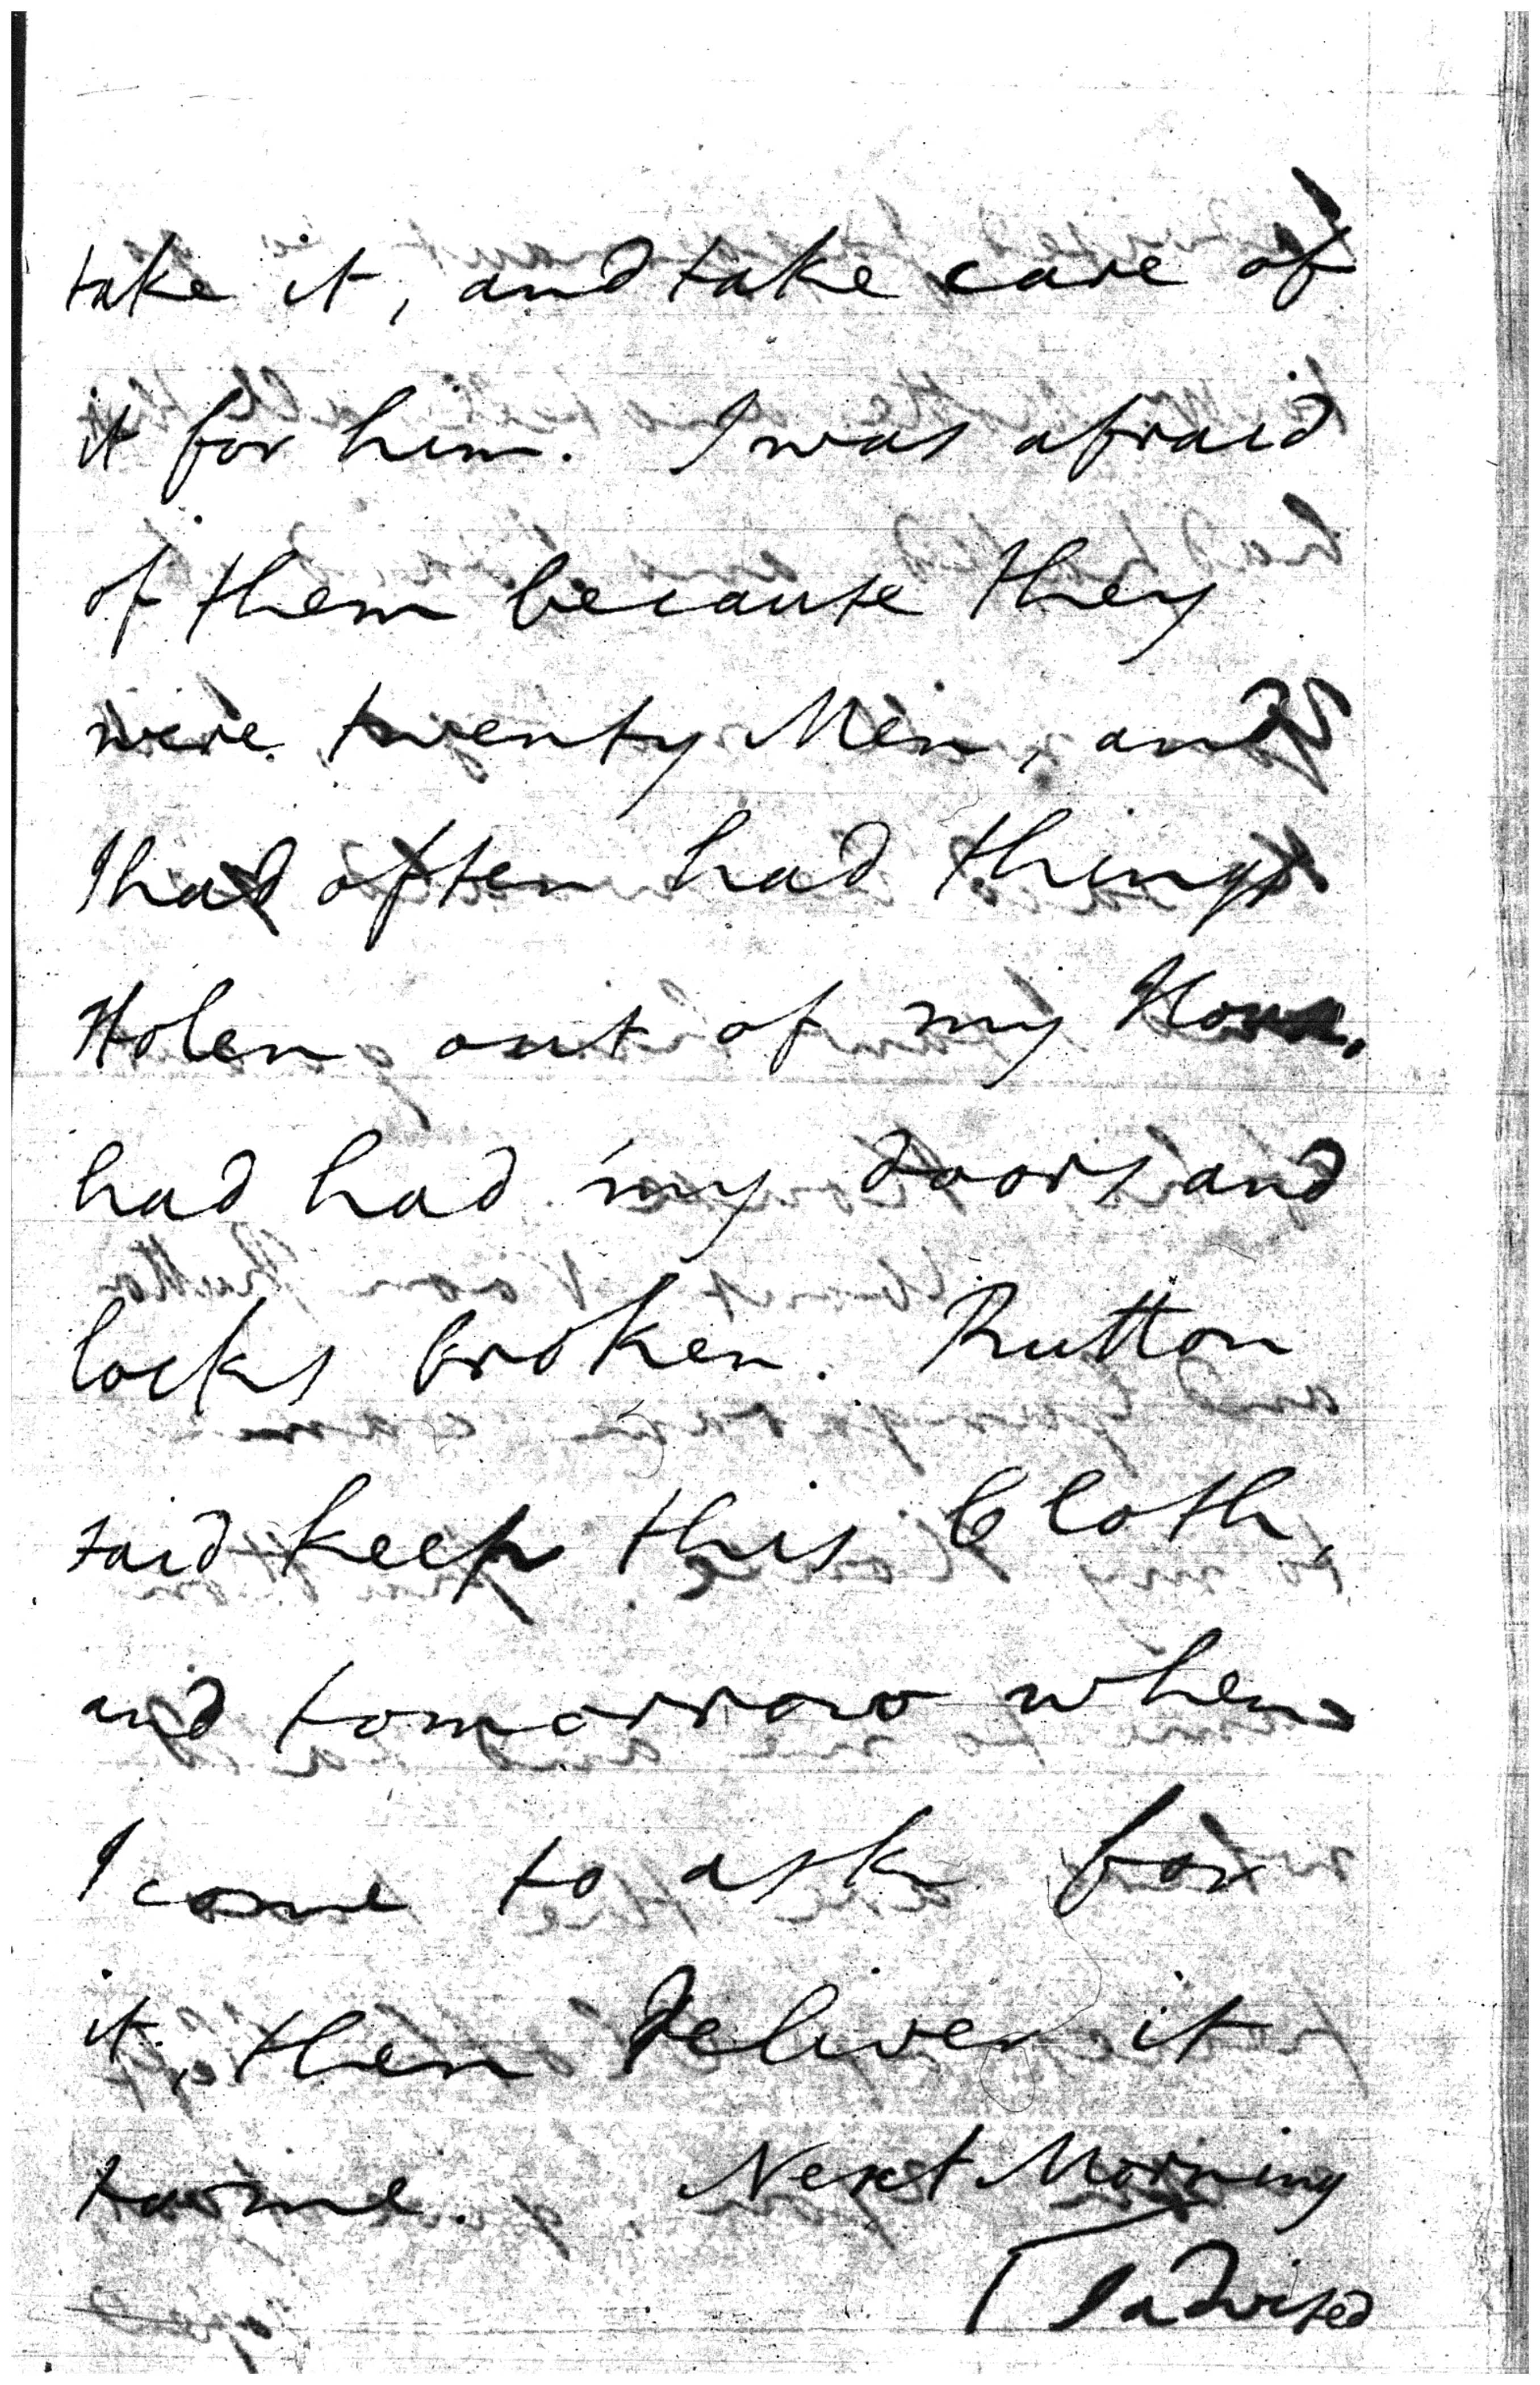 take it, and take care of
it for him. I was afraid
of them because they
were twenty Men, and
I had often had things
stolen out of my House,
had had my doors and
locks broken. Rutton
said keep this Cloth,
and tomorrow when
I come to ask for
it, then deliver it
to me. Next Morning
I advised